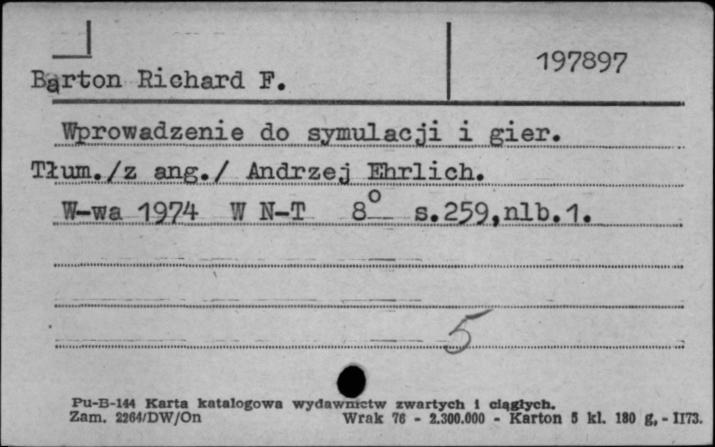 197897
Barton Richard F.
Wprowadzenie do symulacji i gier.
Tłum./z ang./ Andrzej Ehrlich.
W-wa 1974 W N-T 8° s.259,nlb.1.
5
Pu-B-144 Karta katalogowa wydawnictw zwartych i ciągłych.
Zam. 2264/DW/On Wrak 76 - 2.300.000 - Karton 5 kl. 180 g, - II73.